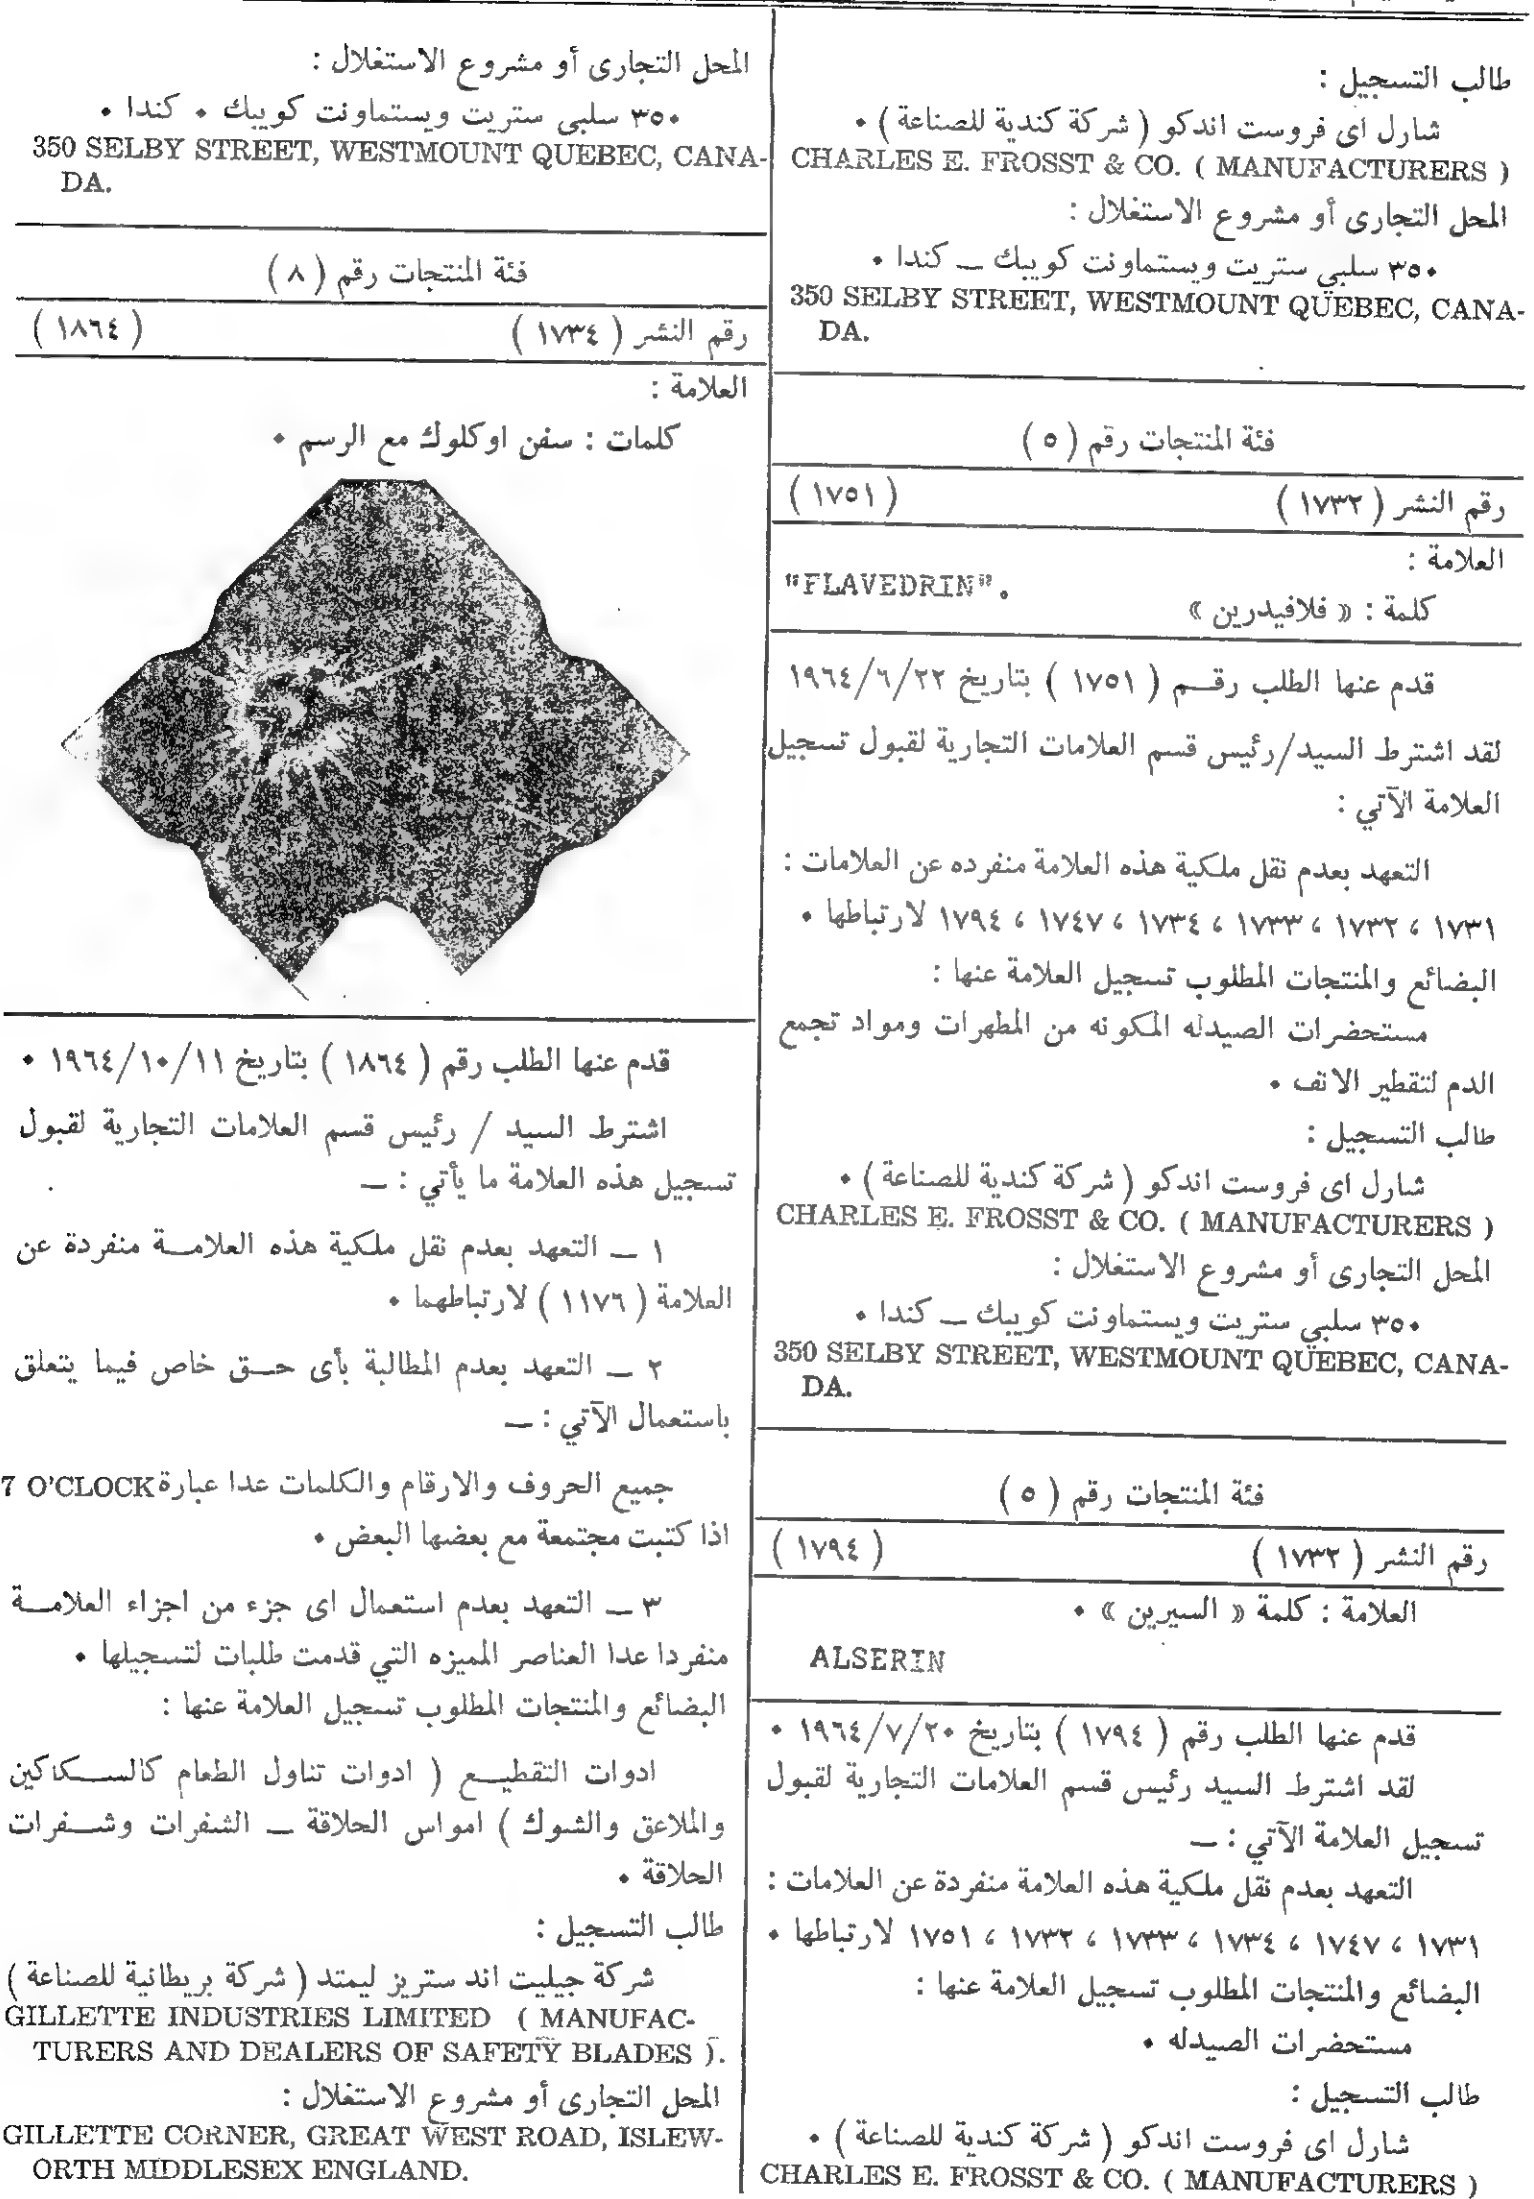 طالب التسجيل :
شارل اى فروست اندكو ( شركة كندية للصناعة ) •
CHARLES E. FROSST & CO. ( MANUFACTURERS )
المحل التجارى أو مشروع الاستغلال :
٣٥٠ سلبي ستريت ويستماونت كويبك ــ كندا •
350 SELBY STREET, WESTMOUNT QUEBEC, CANA-
DA.
فئة المنتجات رقم ( ٥ )
رقم النشر ( ١٧٣٢ ) ( ١٧٥١ )
العلامة :
"FLAVEDRIN".
كلمة : « فلافيدرين »
قدم عنها الطلب رقــم ( ١٧٥١ ) بتاريخ ١٩٦٤/٦/٢٢
لقد اشترط السيد/رئيس قسم العلامات التجارية لقبول تسجيل
العلامة الآتي :
التعهد بعدم نقل ملكية هذه العلامة منفرده عن العلامات :
١٧٣١ ، ١٧٣٢ ، ١٧٣٣ ، ١٧٣٤ ، ١٧٤٧ ، ١٧٩٤ لارتباطها •
البضائع والمنتجات المطلوب تسجيل العلامة عنها :
مستحضرات الصيدله المكونه من المطهرات ومواد تجمع
الدم لتقطير الانف •
طالب التسجيل :
شارل اى فروست اندكو ( شركة كندية للصناعة ) •
CHARLES E. FROSST & CO. ( MANUFACTURERS )
المحل التجارى أو مشروع الاستغلال :
٣٥٠ سلبي ستريت ويستماونت كويبك ــ كندا •
350 SELBY STREET, WESTMOUNT QUEBEC, CANA-
DA.
فئة المنتجات رقم ( ٥ )
رقم النشر ( ١٧٣٢ ) ( ١٧٩٤ )
العلامة : كلمة « السيرين » •
ALSERIN
قدم عنها الطلب رقم ( ١٧٩٤ ) بتاريخ ١٩٦٤/٧/٢٠ •
لقد اشترط السيد رئيس قسم العلامات التجارية لقبول
تسجيل العلامة الآتي : ــ
التعهد بعدم نقل ملكية هذه العلامة منفردة عن العلامات :
١٧٣١ ، ١٧٤٧ ، ١٧٣٤ ، ١٧٣٣ ، ١٧٣٢ ، ١٧٥١ لارتباطها •
البضائع والمنتجات المطلوب تسجيل العلامة عنها :
مستحضرات الصيدله •
طالب التسجيل :
شارل اى فروست اندكو ( شركة كندية للصناعة ) •
CHARLES E. FROSST & CO. ( MANUFACTURERS )
المحل التجارى أو مشروع الاستغلال :
٣٥٠ سلبي ستريت ويستماونت كويبك • كندا •
350 SELBY STREET, WESTMOUNT QUEBEC, CANA-
DA.
فئة المنتجات رقم ( ٨ )
رقم النشر ( ١٧٣٤ ) ( ١٨٦٤ )
العلامة :
كلمات : سفن اوكلوك مع الرسم •
قدم عنها الطلب رقم ( ١٨٦٤ ) بتاريخ ١٩٦٤/١٠/١١ •
اشترط السيد / رئيس قسم العلامات التجارية لقبول
تسجيل هذه العلامة ما يأتي : ــ
١ ــ التعهد بعدم نقل ملكية هذه العلامــة منفردة عن
العلامة ( ١١٧٦ ) لارتباطهما •
٢ ــ التعهد بعدم المطالبة بأى حــق خاص فيما يتعلق
باستعمال الآتي : ــ
جميع الحروف والارقام والكلمات عدا عبارة 7 O'CLOCK
اذا كتبت مجتمعة مع بعضها البعض •
٣ ــ التعهد بعدم استعمال اى جزء من اجزاء العلامــة
منفردا عدا العناصر المميزه التي قدمت طلبات لتسجيلها •
البضائع والمنتجات المطلوب تسجيل العلامة عنها :
ادوات التقطيــع ( ادوات تناول الطعام كالســكاكين
والملاعق والشوك ) امواس الحلاقة ــ الشفرات وشــفرات
الحلاقة •
طالب التسجيل :
شركة جيليت اند ستريز ليمتد ( شركة بريطانية للصناعة )
GILLETTE INDUSTRIES LIMITED ( MANUFAC-
TURERS AND DEALERS OF SAFETY BLADES ).
المحل التجارى أو مشروع الاستغلال :
GILLETTE CORNER, GREAT WEST ROAD, ISLEW-
ORTH MIDDLESEX ENGLAND.